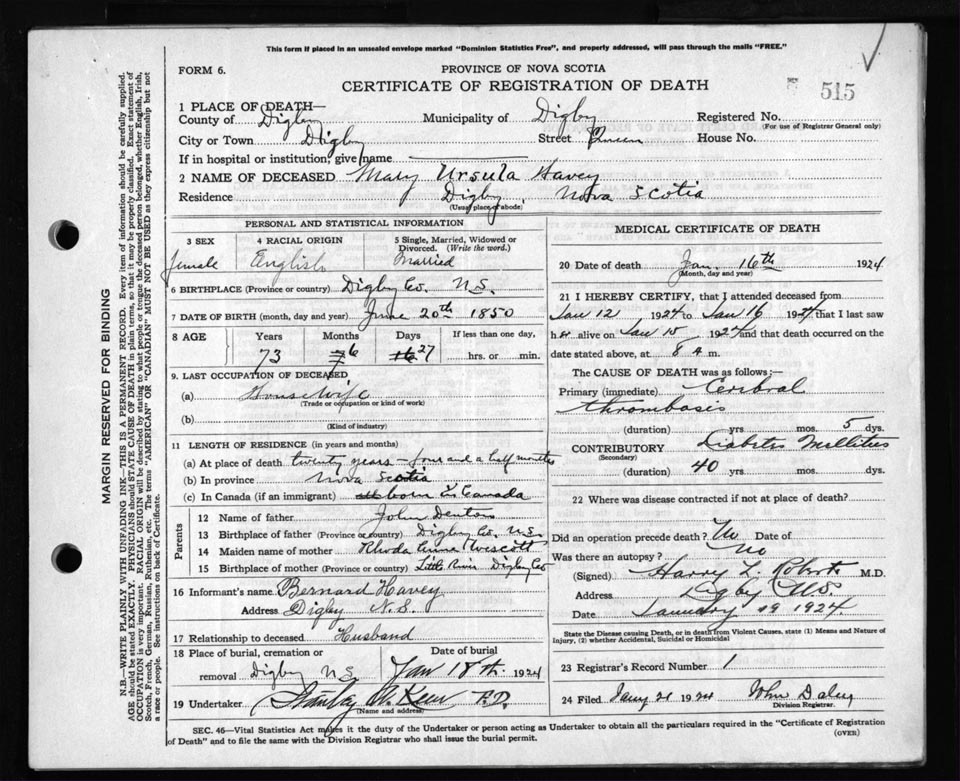 This form if placed in an unsealed envelope marked "Dominion Statistics Free", and properly addressed, will pass through the mails "FREE."
FORM 6.
PROVINCE OF NOVA SCOTIA
CERTIFICATE OF REGISTRATION OF DEATH
515
1 PLACE OF DEATH—
County of Digby Municipality of Digby Registered No.
(For use of Registrar General only)
City or Town Digby Street Queen House No.
If in hospital or institution, give name
2 NAME OF DECEASED Mary Ursula Havey
Residence Digby, Nova Scotia
(Usual place of abode)
PERSONAL AND STATISTICAL INFORMATION
3 SEX 4 RACIAL ORIGIN 5 Single, Married, Widowed or Divorced. (Write the word.)
female English Married
6 BIRTHPLACE (Province or country) Digby Co. N.S.
7 DATE OF BIRTH (month, day and year) June 20th 1850
8 AGE Years Months Days If less than one day,
73 6 27 hrs. or min.
9. LAST OCCUPATION OF DECEASED
(a) Housewife
(Trade or occupation or kind of work)
(b)
(Kind of industry)
11 LENGTH OF RESIDENCE (in years and months)
(a) At place of death twenty years - four and a half months
(b) In province Nova Scotia
(c) In Canada (if an immigrant) born in Canada
Parents
12 Name of father John Denton
13 Birthplace of father (Province or country) Digby Co. N.S.
14 Maiden name of mother Rhoda Anne Wescott
15 Birthplace of mother (Province or country) Little River Digby Co
16 Informant's name Bernard Havey
Address Digby N.S.
17 Relationship to deceased Husband
18 Place of burial, cremation or removal Digby N.S. Date of burial Jan 18th. 1924
19 Undertaker F.D.
(Name and address)
MEDICAL CERTIFICATE OF DEATH
20 Date of death Jan. 16th 1924
(Month, day and year)
21 I HEREBY CERTIFY, that I attended deceased from
Jan 12 1924 to Jan 16 1924 that I last saw
her alive on Jan 15 1924 and that death occurred on
date stated above, at 8 a m.
The CAUSE OF DEATH was as follows:—
Primary (immediate) Cerebral
thromboses
(duration) yrs mos. 5 dys.
CONTRIBUTORY Diabetes Mellitus
(Secondary)
(duration) 40 yrs mos. dys.
22 Where was disease contracted if not at place of death?
Did an operation precede death? No Date of
Was there an autopsy? No
(Signed) Harry L. Roberts M.D.
Address Digby N.S.
Date January 19 1924.
State the Disease causing Death, or in death from Violent Causes, state (1) Means and Nature of
Injury, (2) whether Accidental, Suicidal or Homicidal
23 Registrar's Record Number 1
24 Filed Jany 21 1924 John Daley
Division Registrar.
SEC. 46—Vital Statistics Act makes it the duty of the Undertaker or person acting as Undertaker to obtain all the particulars required in the "Certificate of Registration
of Death" and to file the same with the Division Registrar who shall issue the burial permit.
(OVER)
MARGIN RESERVED FOR BINDING
N.B.—WRITE PLAINLY WITH UNFADING INK—THIS IS A PERMANENT RECORD. Every item of information should be carefully supplied.
AGE should be stated EXACTLY. PHYSICIANS should STATE CAUSE OF DEATH in plain terms, so that it may be properly classified. Exact statement of
OCCUPATION is very important. RACIAL ORIGIN will be described by stating to what people or tongue the deceased person belonged, whether English, Irish,
Scotch, French, German, Russian, Ruthenian, etc. The terms "AMERICAN" OR "CANADIAN" MUST NOT BE USED as they express citizenship but not
a race or people. See instructions on back of Certificate.